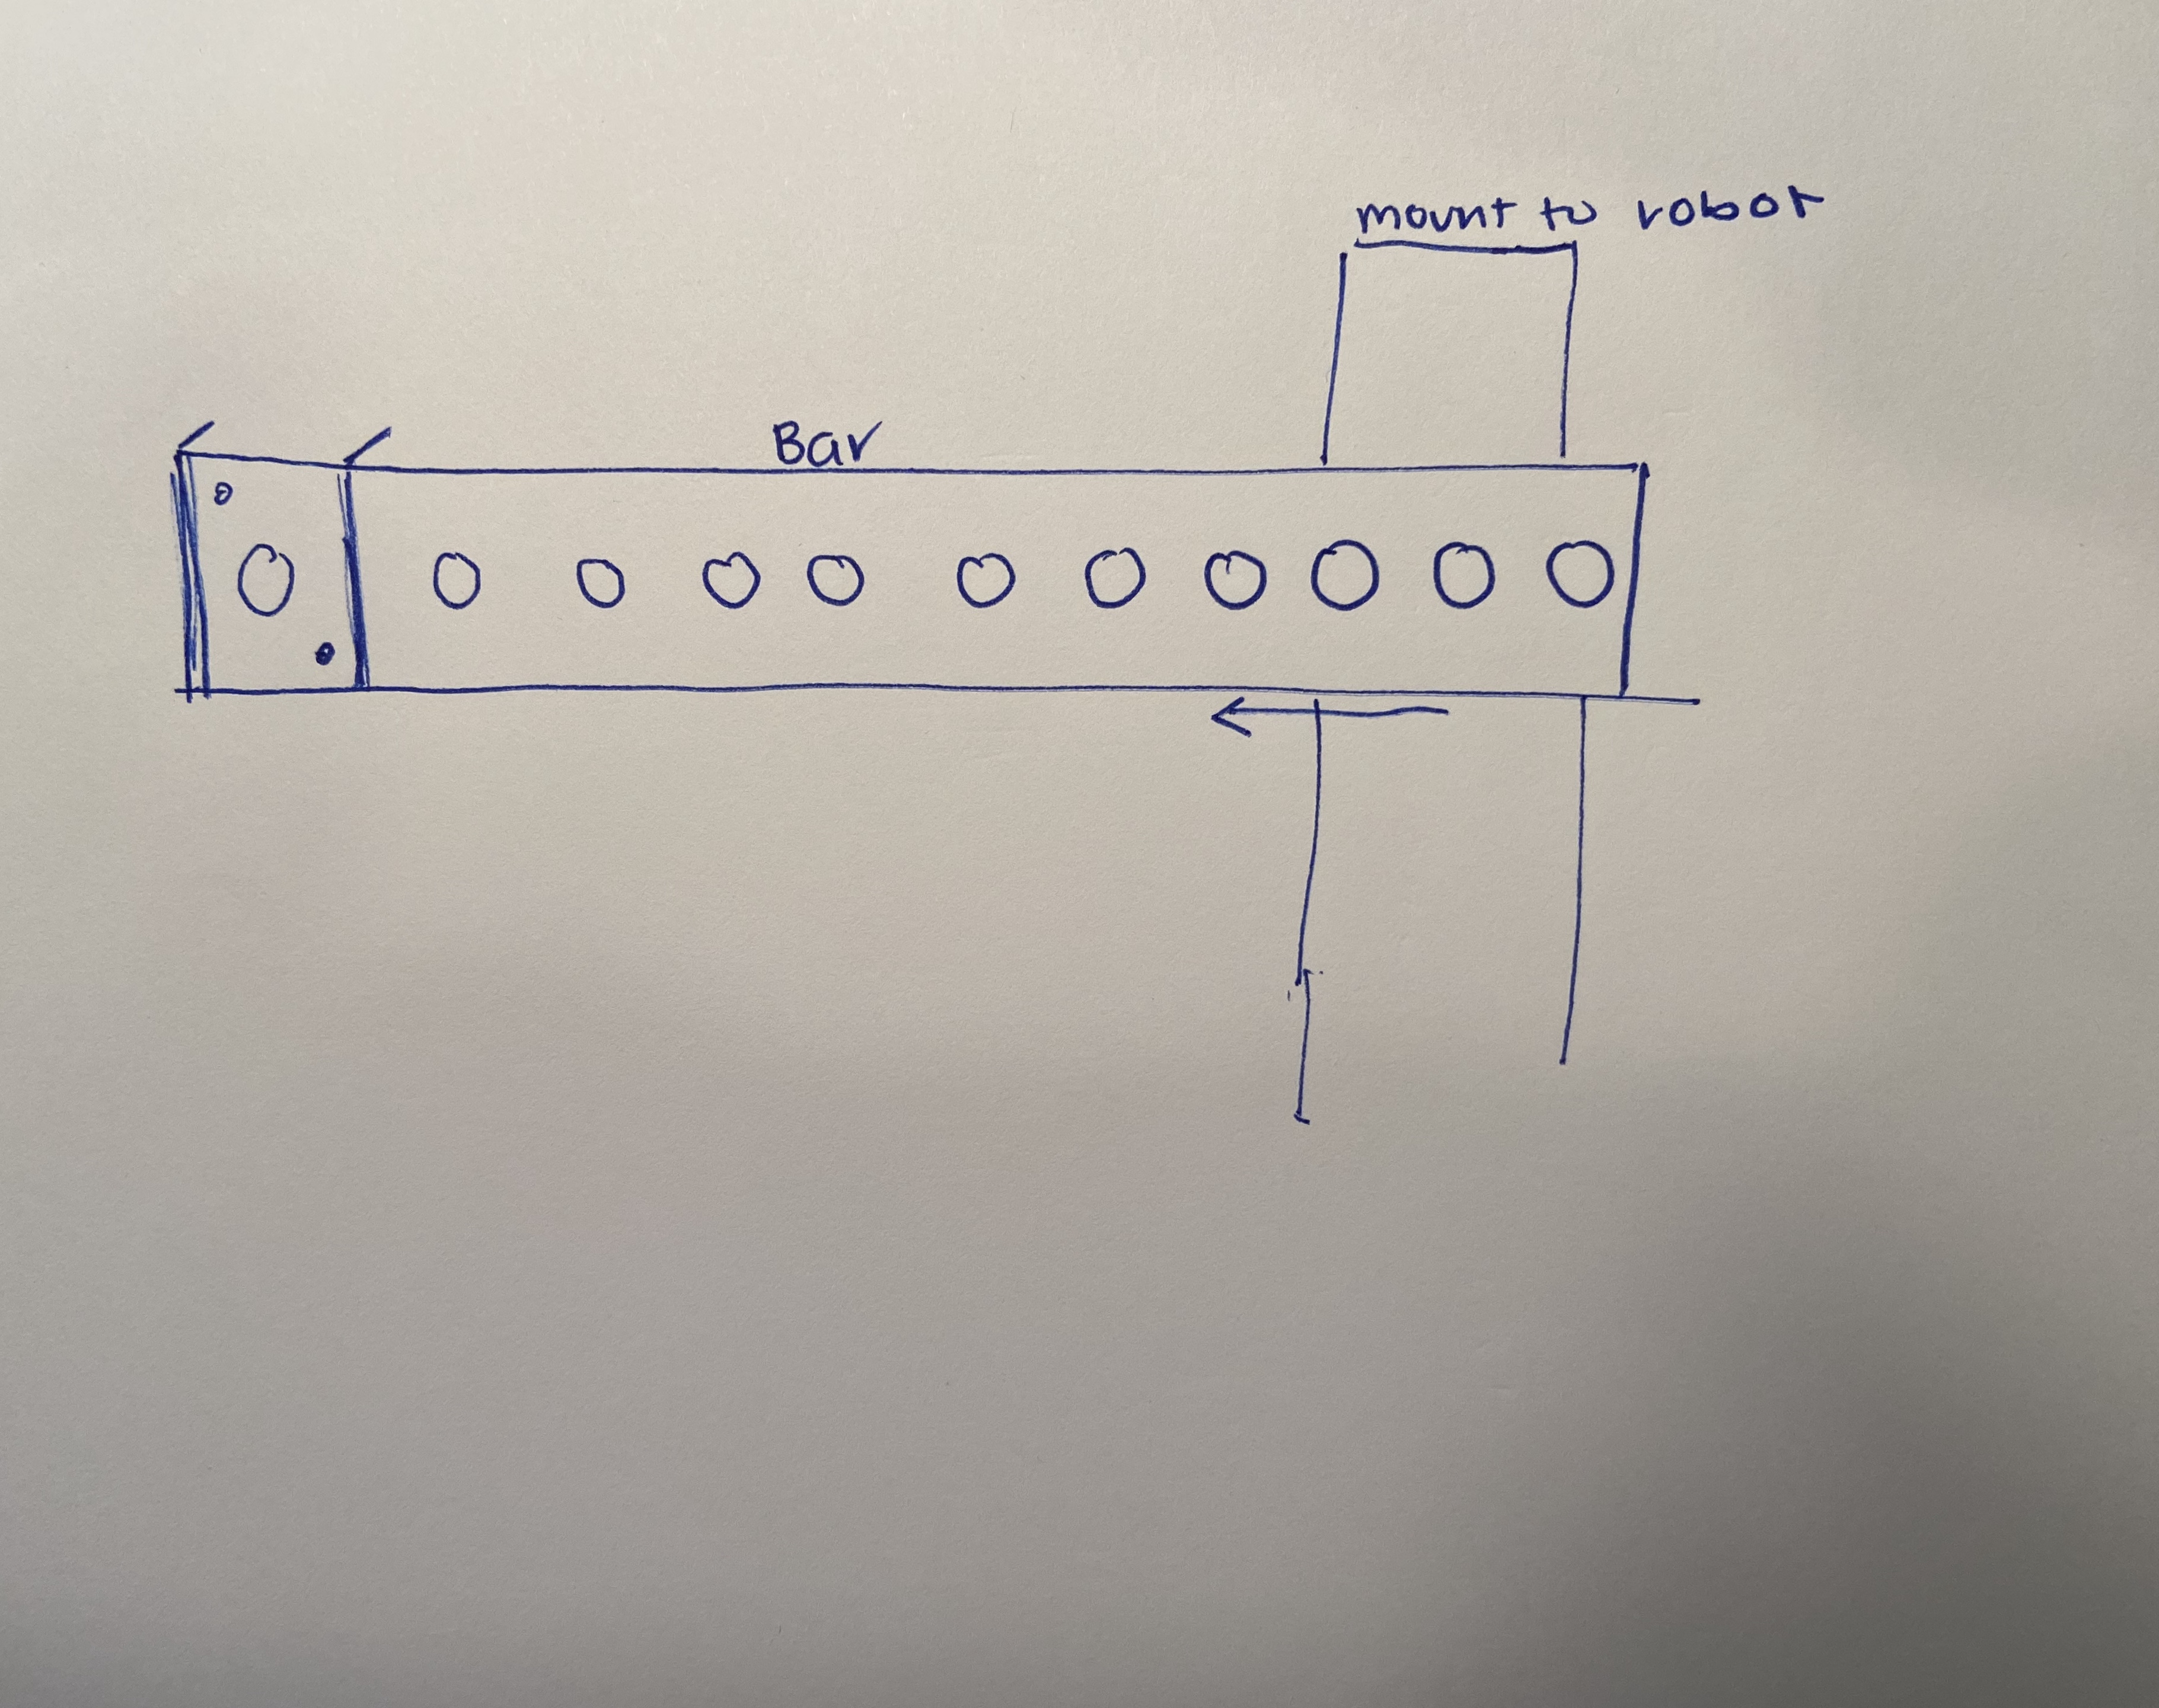 mount to robot
Bar